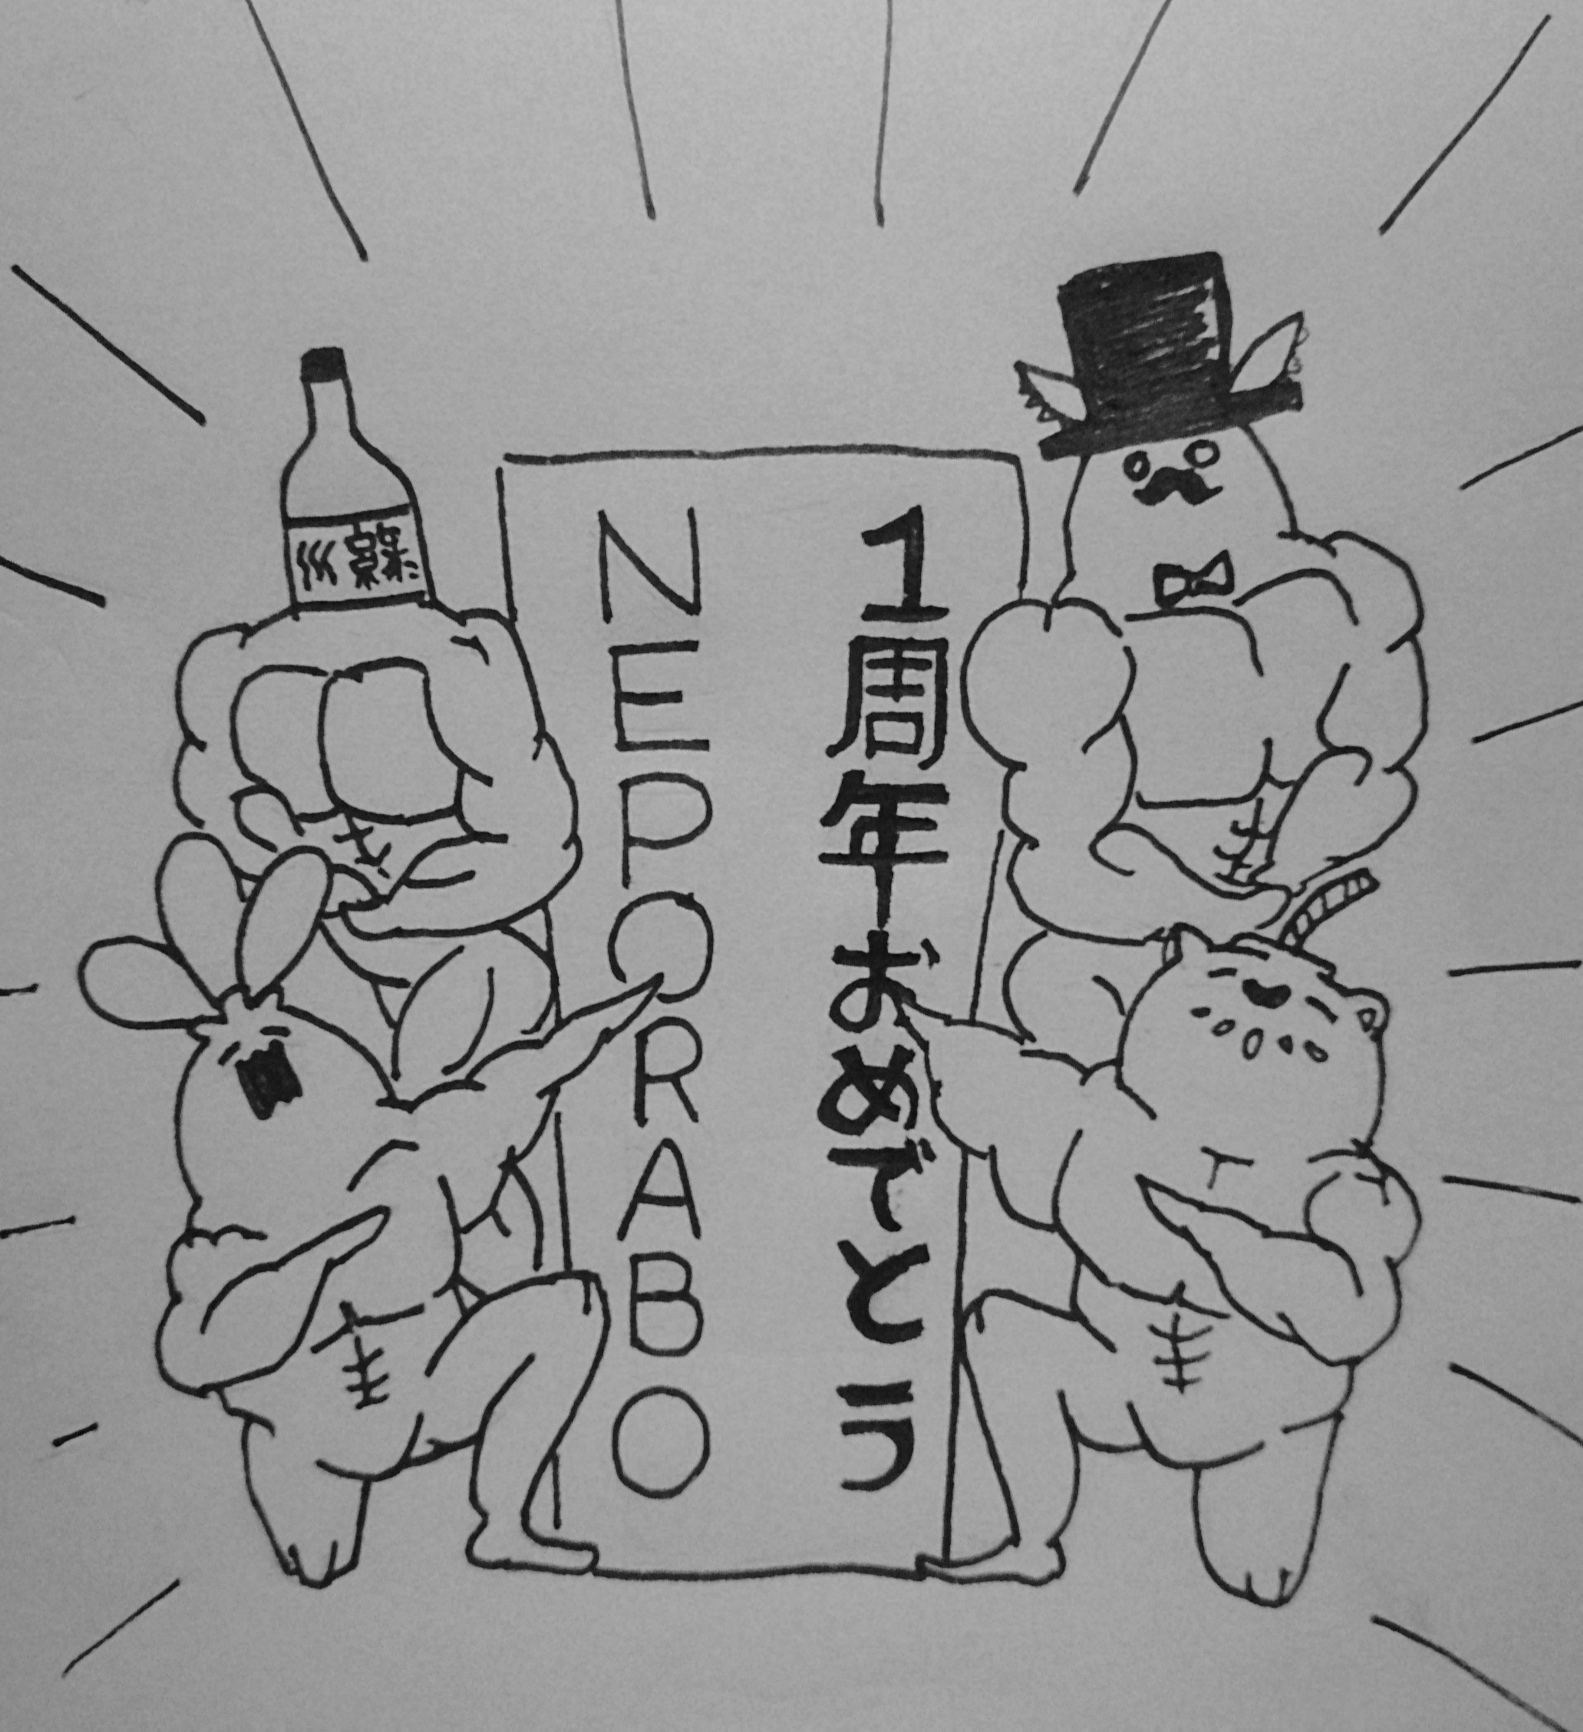 1周年おめでとう
NEPORABO